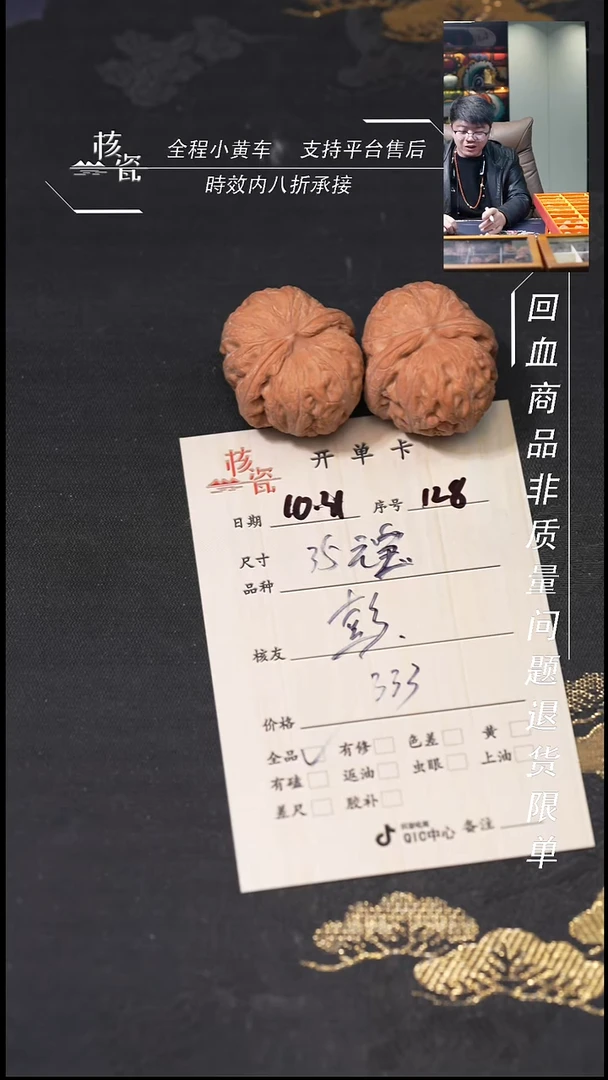 核瓷
全程小黄车 支持平台售后
時效内八折承接
回血商品非质量问题退货限单
核瓷 开单卡
日期 10.31 序号 128
尺寸 35元宝
品种
核友
333
价格
全品 有修 色差 黄
有磕 返油 虫眼 上油
差尺 胶补
QIC中心 备注